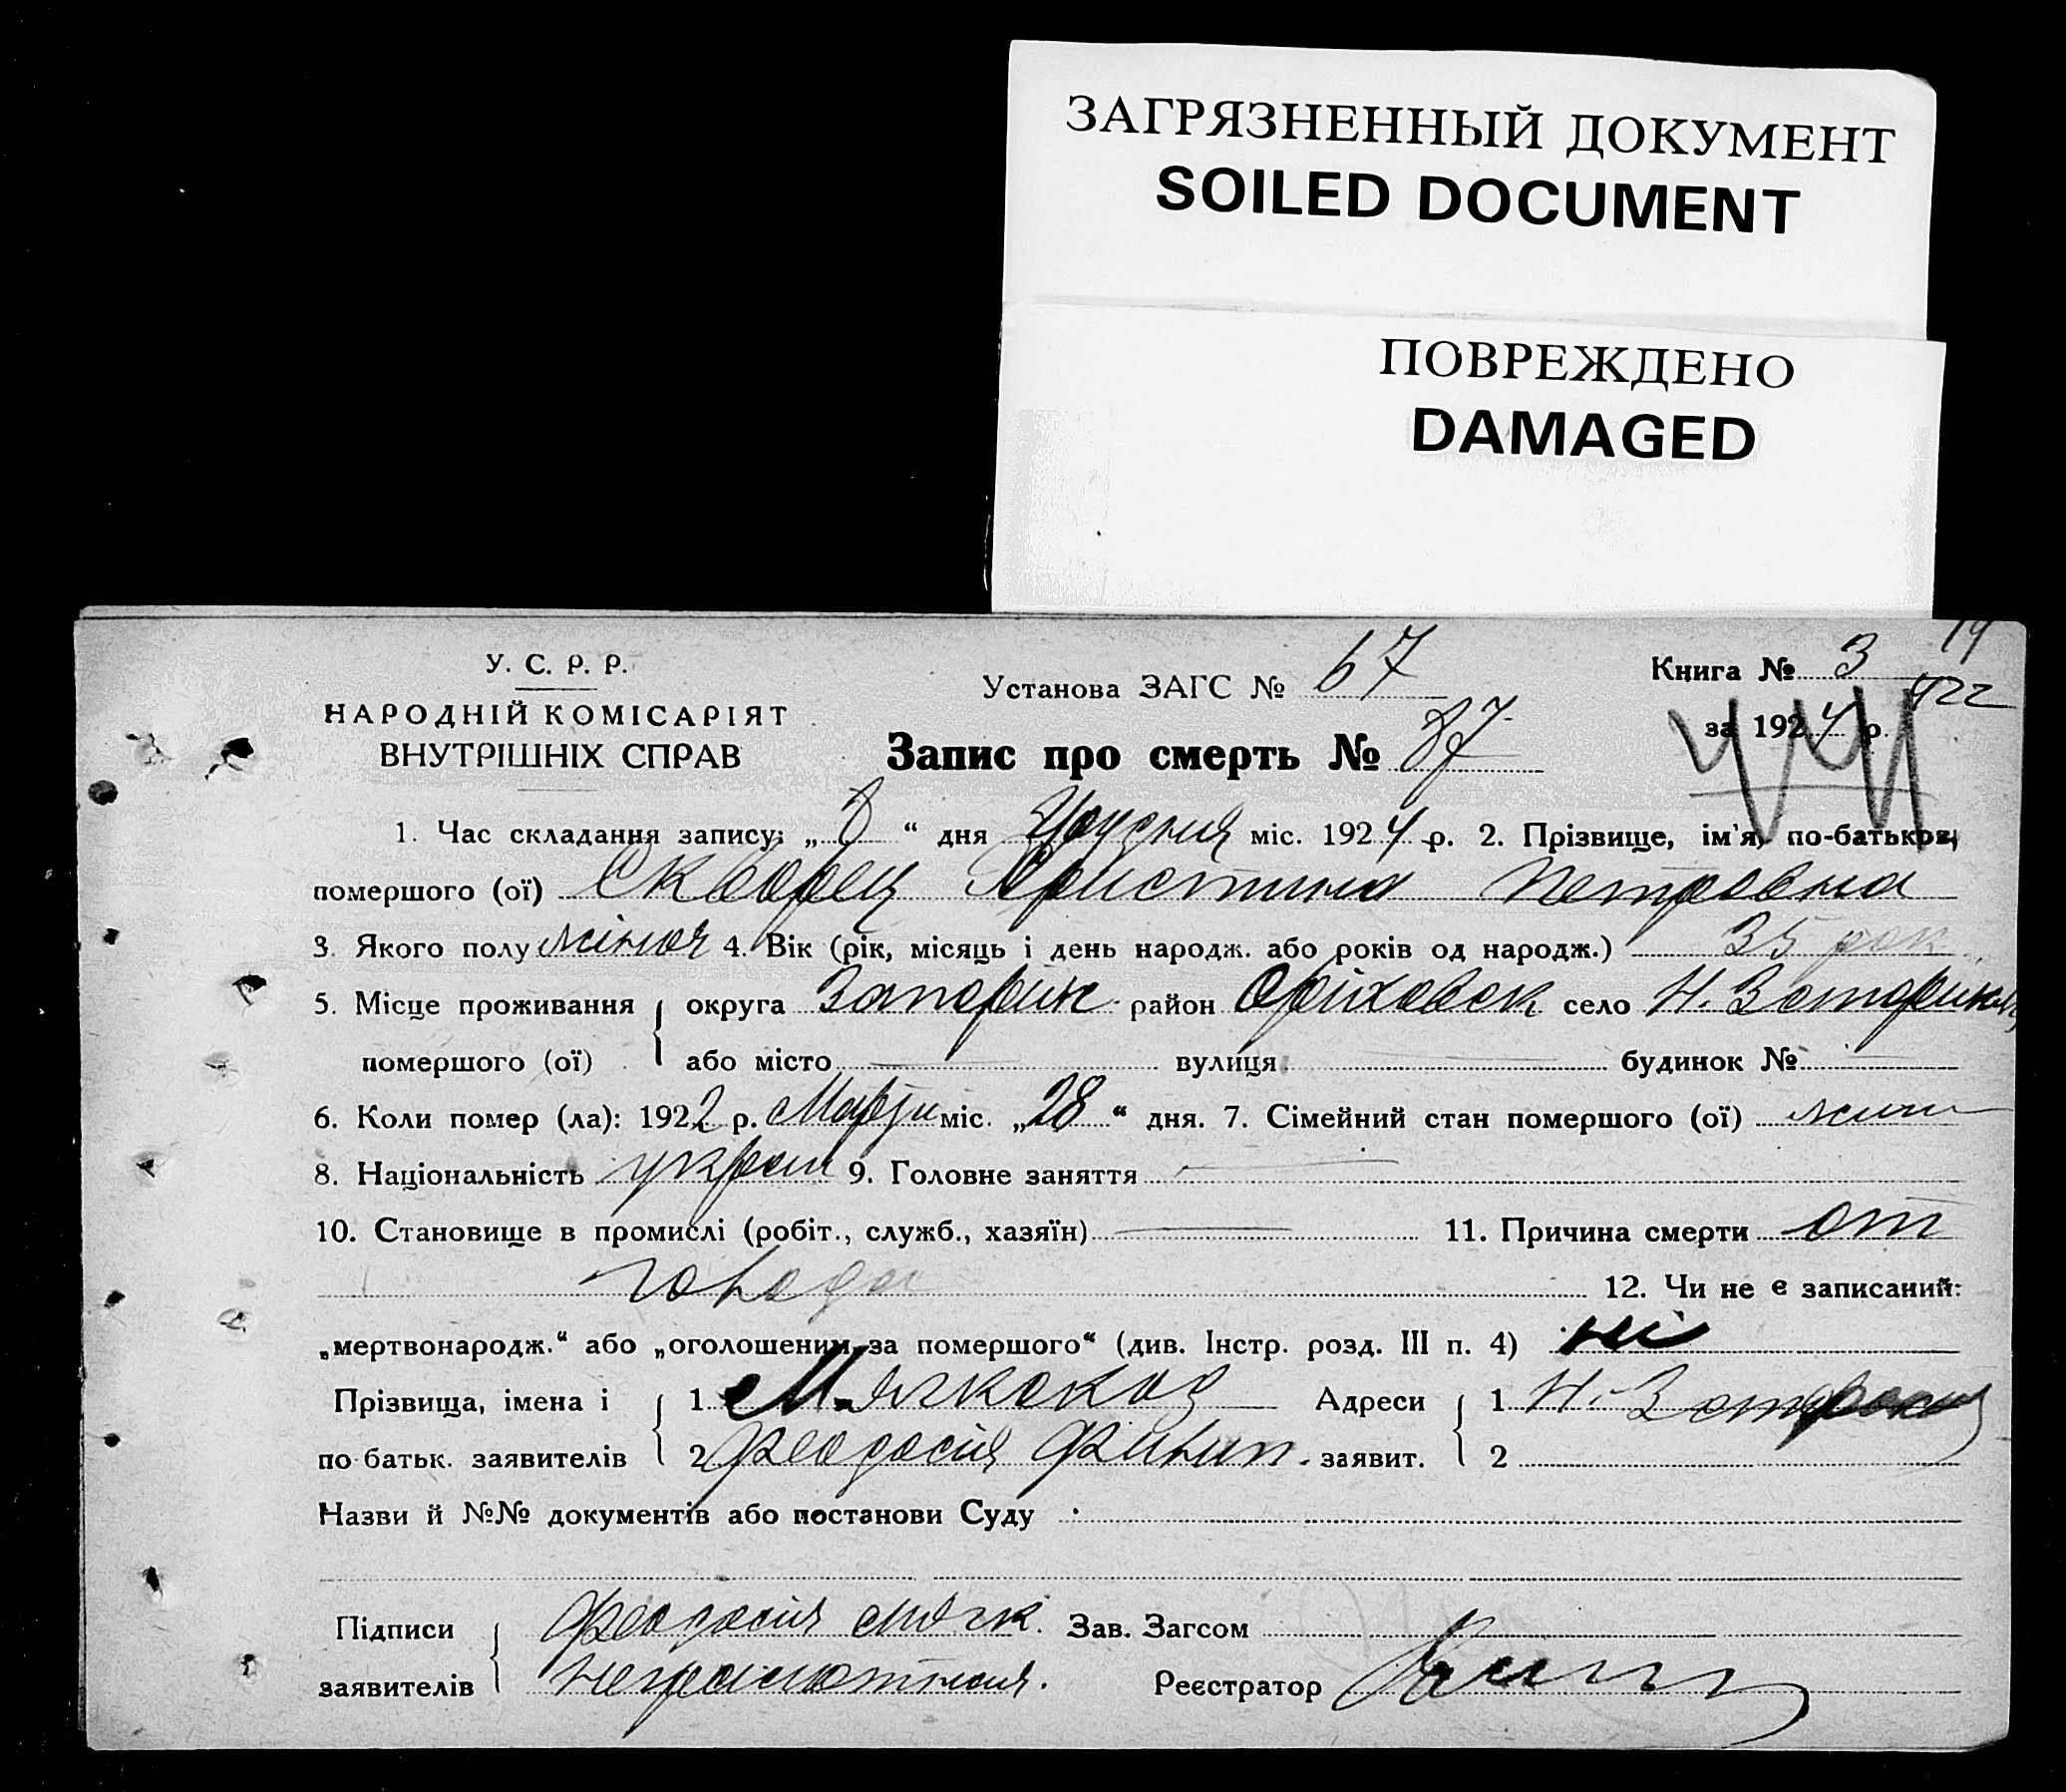 ЗАГРЯЗНЕННЫЙ ДОКУМЕНТ
SOILED DOCUMENT
ПОВРЕЖДЕНО
DAMAGED
У. С. Р. Р.
НАРОДНІЙ КОМІСАРІЯТ
ВНУТРІШНІХ СПРАВ
Установа ЗАГС № 67
Книга № 3
422
за 1924 р.
Запис про смерть № 37
1. Час складання запису: „ “ дня міс. 1924 р. 2. Прізвище, ім'я, по-батькові,
помершого (ої) Скворец Христина Петровна
3. Якого полу жіноч 4. Вік (рік, місяць і день народж. або років од народж.) 35 рок
5. Місце проживання округа Запоріж район Оріховск село
помершого (ої) або місто вулиця будинок №
6. Коли помер (ла): 1922 р. міс. „28“ дня. 7. Сімейний стан помершого (ої)
8. Національність україн 9. Головне заняття
10. Становище в промислі (робіт., служб., хазяїн) 11. Причина смерти от
голода 12. Чи не є записаний:
„мертвонародж.“ або „оголошеним за помершого“ (див. Інстр. розд. III п. 4) ні
Прізвища, імена і 1 Мягкоход Адреси 1
по батьк. заявителів 2 Феодосія Филип. заявит. 2
Назви й №№ документів або постанови Суду
Підписи Феодосия Мягк. Зав. Загсом
заявителів неграмотная. Реєстратор